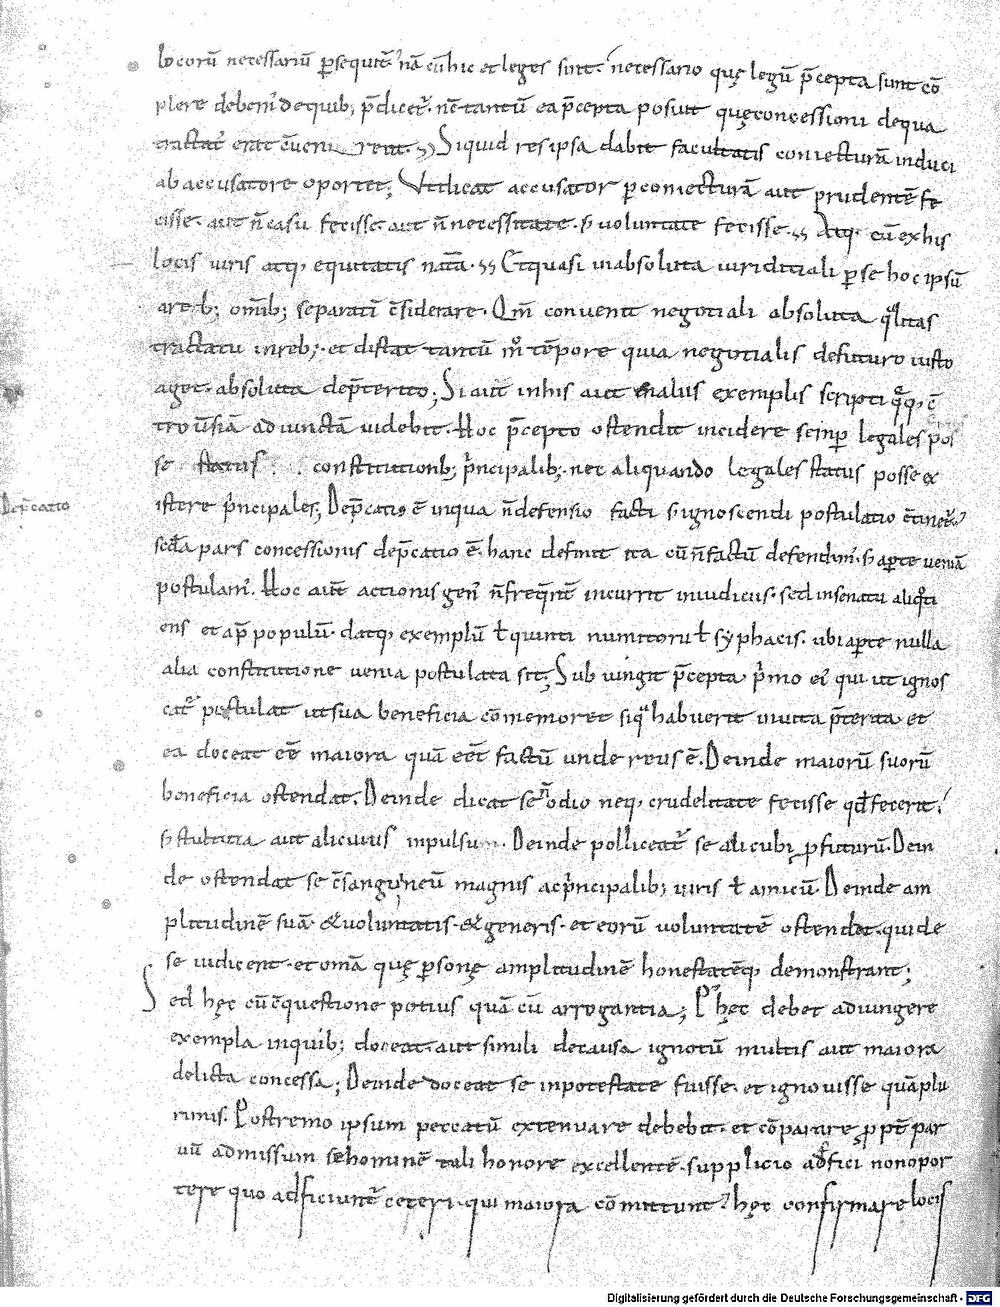 locorū necessariū p̄sequit̄ nā cū hic et leges sint. necessario quę legū p̄cepta sunt cō
plere debem' de quib; p̄dicet̄. nē tantū ea p̄cepta posuit quę concessioni de qua
tractat' erat ēveni reat. Siquid res ipsa dabit facultatis coniecturā induci
ab accusatore oportet; Ut dicat accusator p coniecturā aut prudentē fe
cisse. aut n̄ casu fecisse. aut n̄ necessitate. s; voluntate fecisse. Atq; cū ex his
locis iuris atq; equitatis nat̄a. Et quasi in absoluta iuriditiali p se hoc ipsū
artib; om̄ib; separati c̄siderare. Qm̄ convenit negotiali absoluta qlitas
tractatu in reb; et distat tantū m° tēpore quia negotialis de futuro iusto
aget. absoluta dep̄terito; Si aut̄ in his aut malus exemplis scripti qq; c̄
trov̄siā adiunctā videbit. Hoc p̄cepto ostendit incidere semp legales pos
se status constitutionib; p'ncipalib; nec aliquando legales status posse ex
istere p'ncipales; Dep̄catio ē in qua n̄ defensio facti s; ignoscendi postulatio c̄tinet̄.
Dep̄catio
sc̄da pars concessionis dep̄catio ē. hanc definit ita cū n̄ factū defendim'. s; aperte veniā
postulam'. Hoc aut̄ actionis gen' n̄ freqnt̄ incurrit in iudiciis. sed in senatu aliqoti
ens et ap̄ populū. datq; exemplū ł quinti numitorii ł syphacis. ubi aperte nulla
alia constitutione venia postulata sit; Subiungit p̄cepta p'mo ei' qui ut ignos
cat̄ postulat ut sua beneficia cōmemoret siq habuerit in vita p̄terita et
ea doceat eē maiora quā eēt factū unde reus ē. Deinde maiorū suorū
beneficia ostendat. Deinde dicat se n̄ odio neq; crudelitate fecisse qd fecerit.
s; stultitia aut alicuius inpulsu. Deinde polliceat̄ se alicubi p̄futurū. Dein
de ostendat se c̄sanguineū magnis ac p'ncipalib; viris ł amicū. Deinde am
plitudinē suā. & voluntatis. & generis. et eorū voluntatē ostendat. qui de
se iudicent. et om̄a quę p̄sonę amplitudinē honestatēq; demonstrant;
Sed hęc cū c̄questione potius quā cū arrogantia; P' hęc debet adiungere
exempla in quib; doceat. aut simili de causa ignotū multis aut maiora
delicta concessa; Deinde doceat se in potestate fuisse. et ignovisse quā plu
rimis. Postremo ipsum peccatū extenuare debebit. et cōparare p ppt̄ par
vū admissum se hominē tali honore excellentē. supplicio adfici non opor
tere quo adficiunt̄ ceteri. qui maiora cōmittunt; hęc confirmare locis
Digitalisierung gefördert durch die Deutsche Forschungsgemeinschaft - DFG